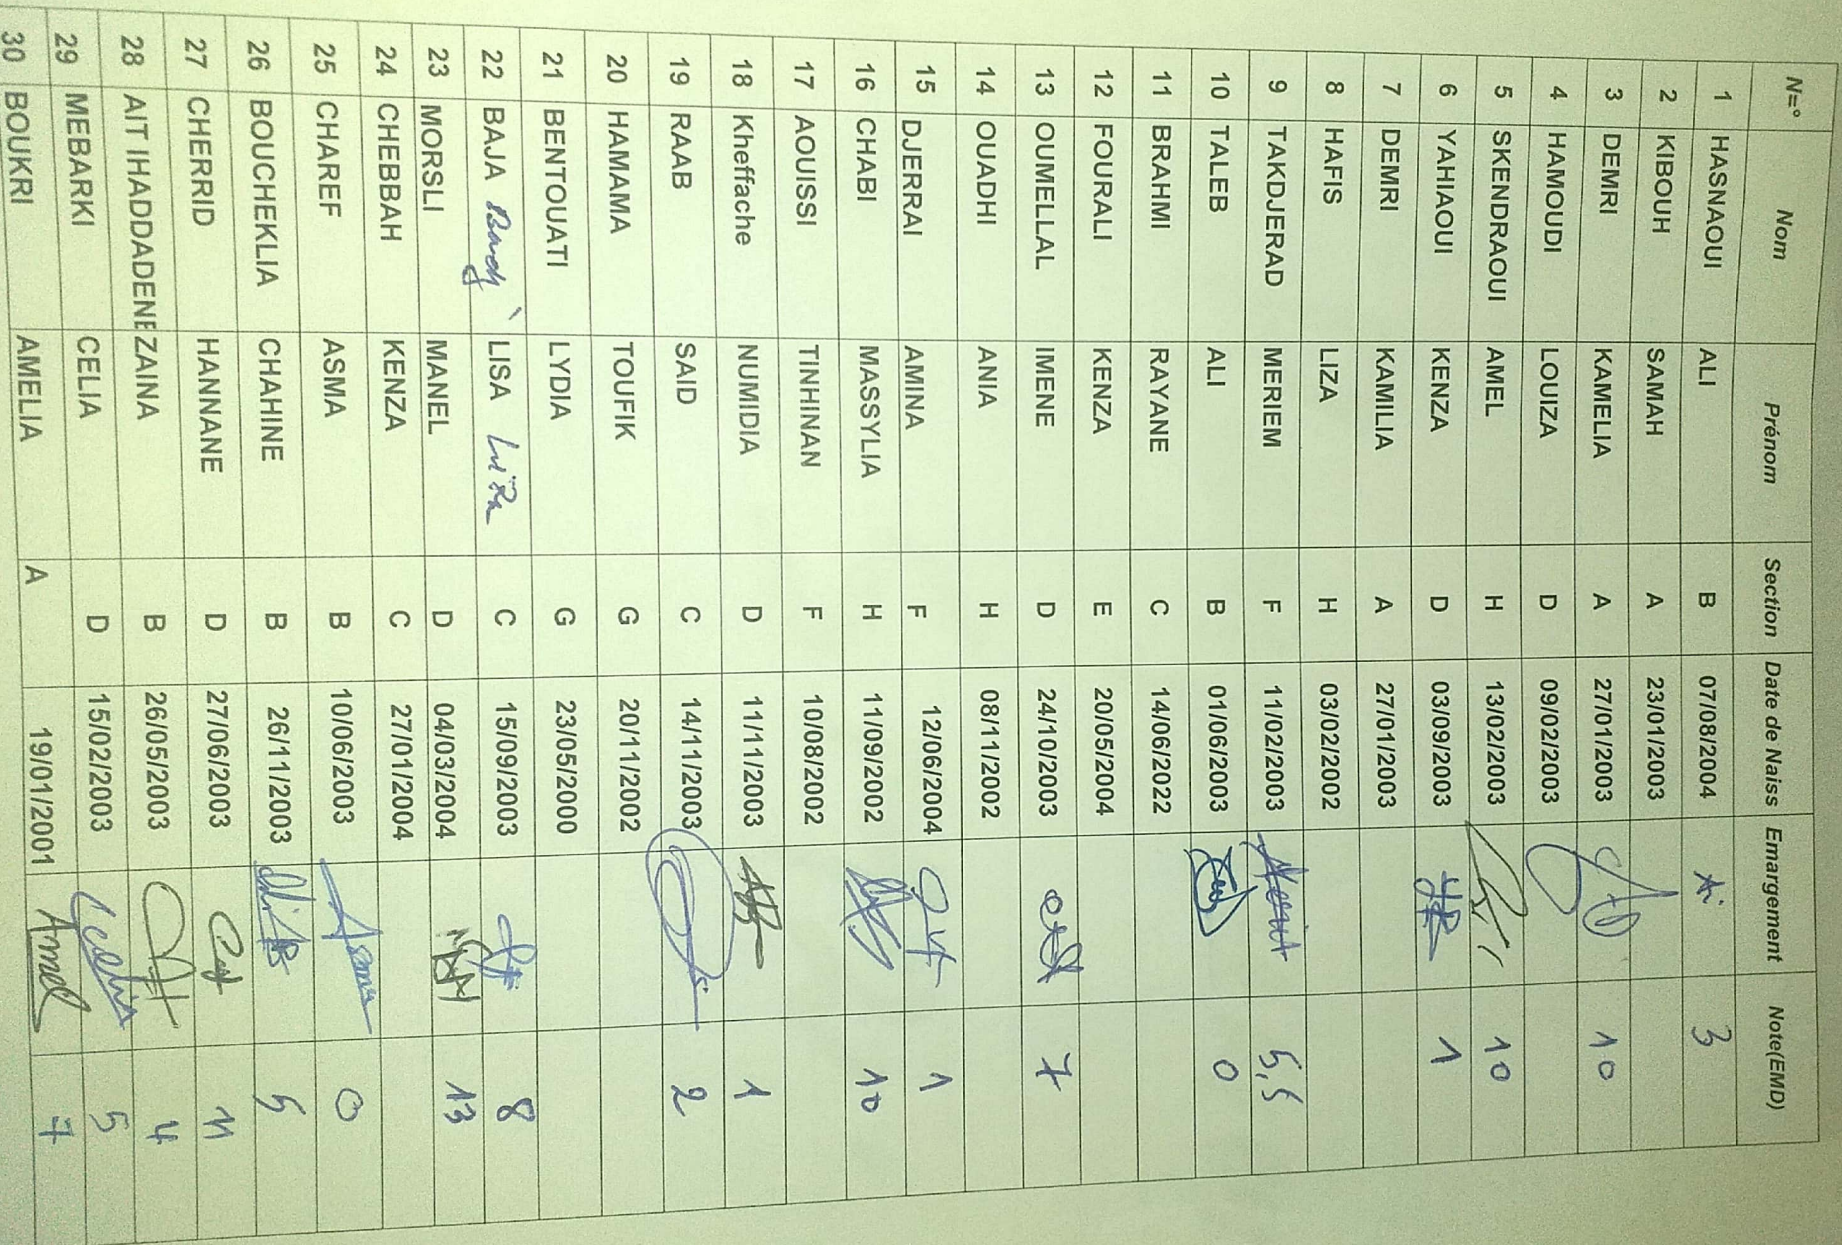 N=° Nom Prénom Section Date de Naiss Emargement Note(EMD)
1 HASNAOUI ALI B 07/08/2004 3
2 KIBOUH SAMAH A 23/01/2003
3 DEMRI KAMELIA A 27/01/2003 10
4 HAMOUDI LOUIZA D 09/02/2003
5 SKENDRAOUI AMEL H 13/02/2003 10
6 YAHIAOUI KENZA D 03/09/2003 1
7 DEMRI KAMILIA A 27/01/2003
8 HAFIS LIZA H 03/02/2002
9 TAKDJERAD MERIEM F 11/02/2003 5,5
10 TALEB ALI B 01/06/2003 0
11 BRAHMI RAYANE C 14/06/2022
12 FOURALI KENZA E 20/05/2004
13 OUMELLAL IMENE D 24/10/2003 7
14 OUADHI ANIA H 08/11/2002
15 DJERRAI AMINA F 12/06/2004 1
16 CHABI MASSYLIA H 11/09/2002 10
17 AOUISSI TINHINAN F 10/08/2002
18 Kheffache NUMIDIA D 11/11/2003 1
19 RAAB SAID C 14/11/2003 2
20 HAMAMA TOUFIK G 20/11/2002
21 BENTOUATI LYDIA G 23/05/2000
22 BAJA LISA C 15/09/2003 8
23 MORSLI MANEL D 04/03/2004 13
24 CHEBBAH KENZA C 27/01/2004
25 CHAREF ASMA B 10/06/2003 Asma 0
26 BOUCHEKLIA CHAHINE B 26/11/2003 5
27 CHERRID HANNANE D 27/06/2003 11
28 AIT IHADDADENE ZAINA B 26/05/2003 4
29 MEBARKI CELIA D 15/02/2003 5
30 BOUKRI AMELIA A 19/01/2001 Amel 7